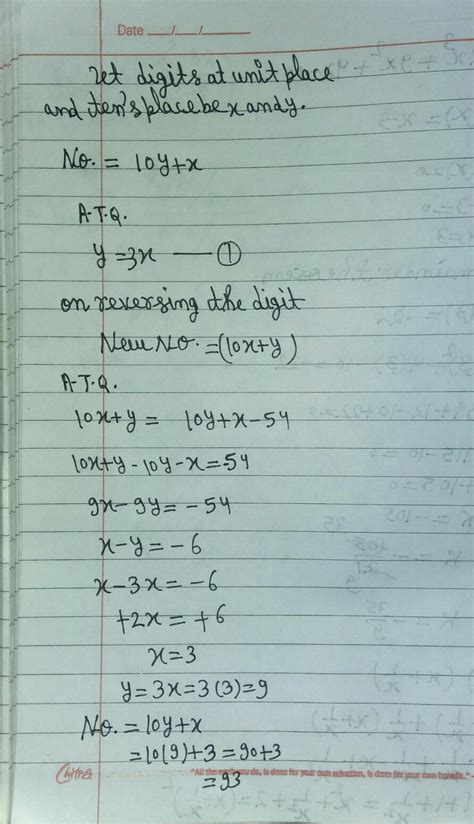 Date __/__/__
Let digits at unit place
and ten's place be x and y.
No. = 10y+x
A.T.Q.
y = 3x —— ①
on reversing the digit
New No. = (10x+y)
A.T.Q.
10x+y = 10y+x-54
10x+y-10y-x=-54
9x-9y=-54
x-y=-6
x-3x=-6
+2x=+6
x=3
y=3x=3(3)=9
No. = 10y+x
=10(9)+3=90+3
Chitra "All the work you do, is done for your own salvation, is done for your own benefit."
=93